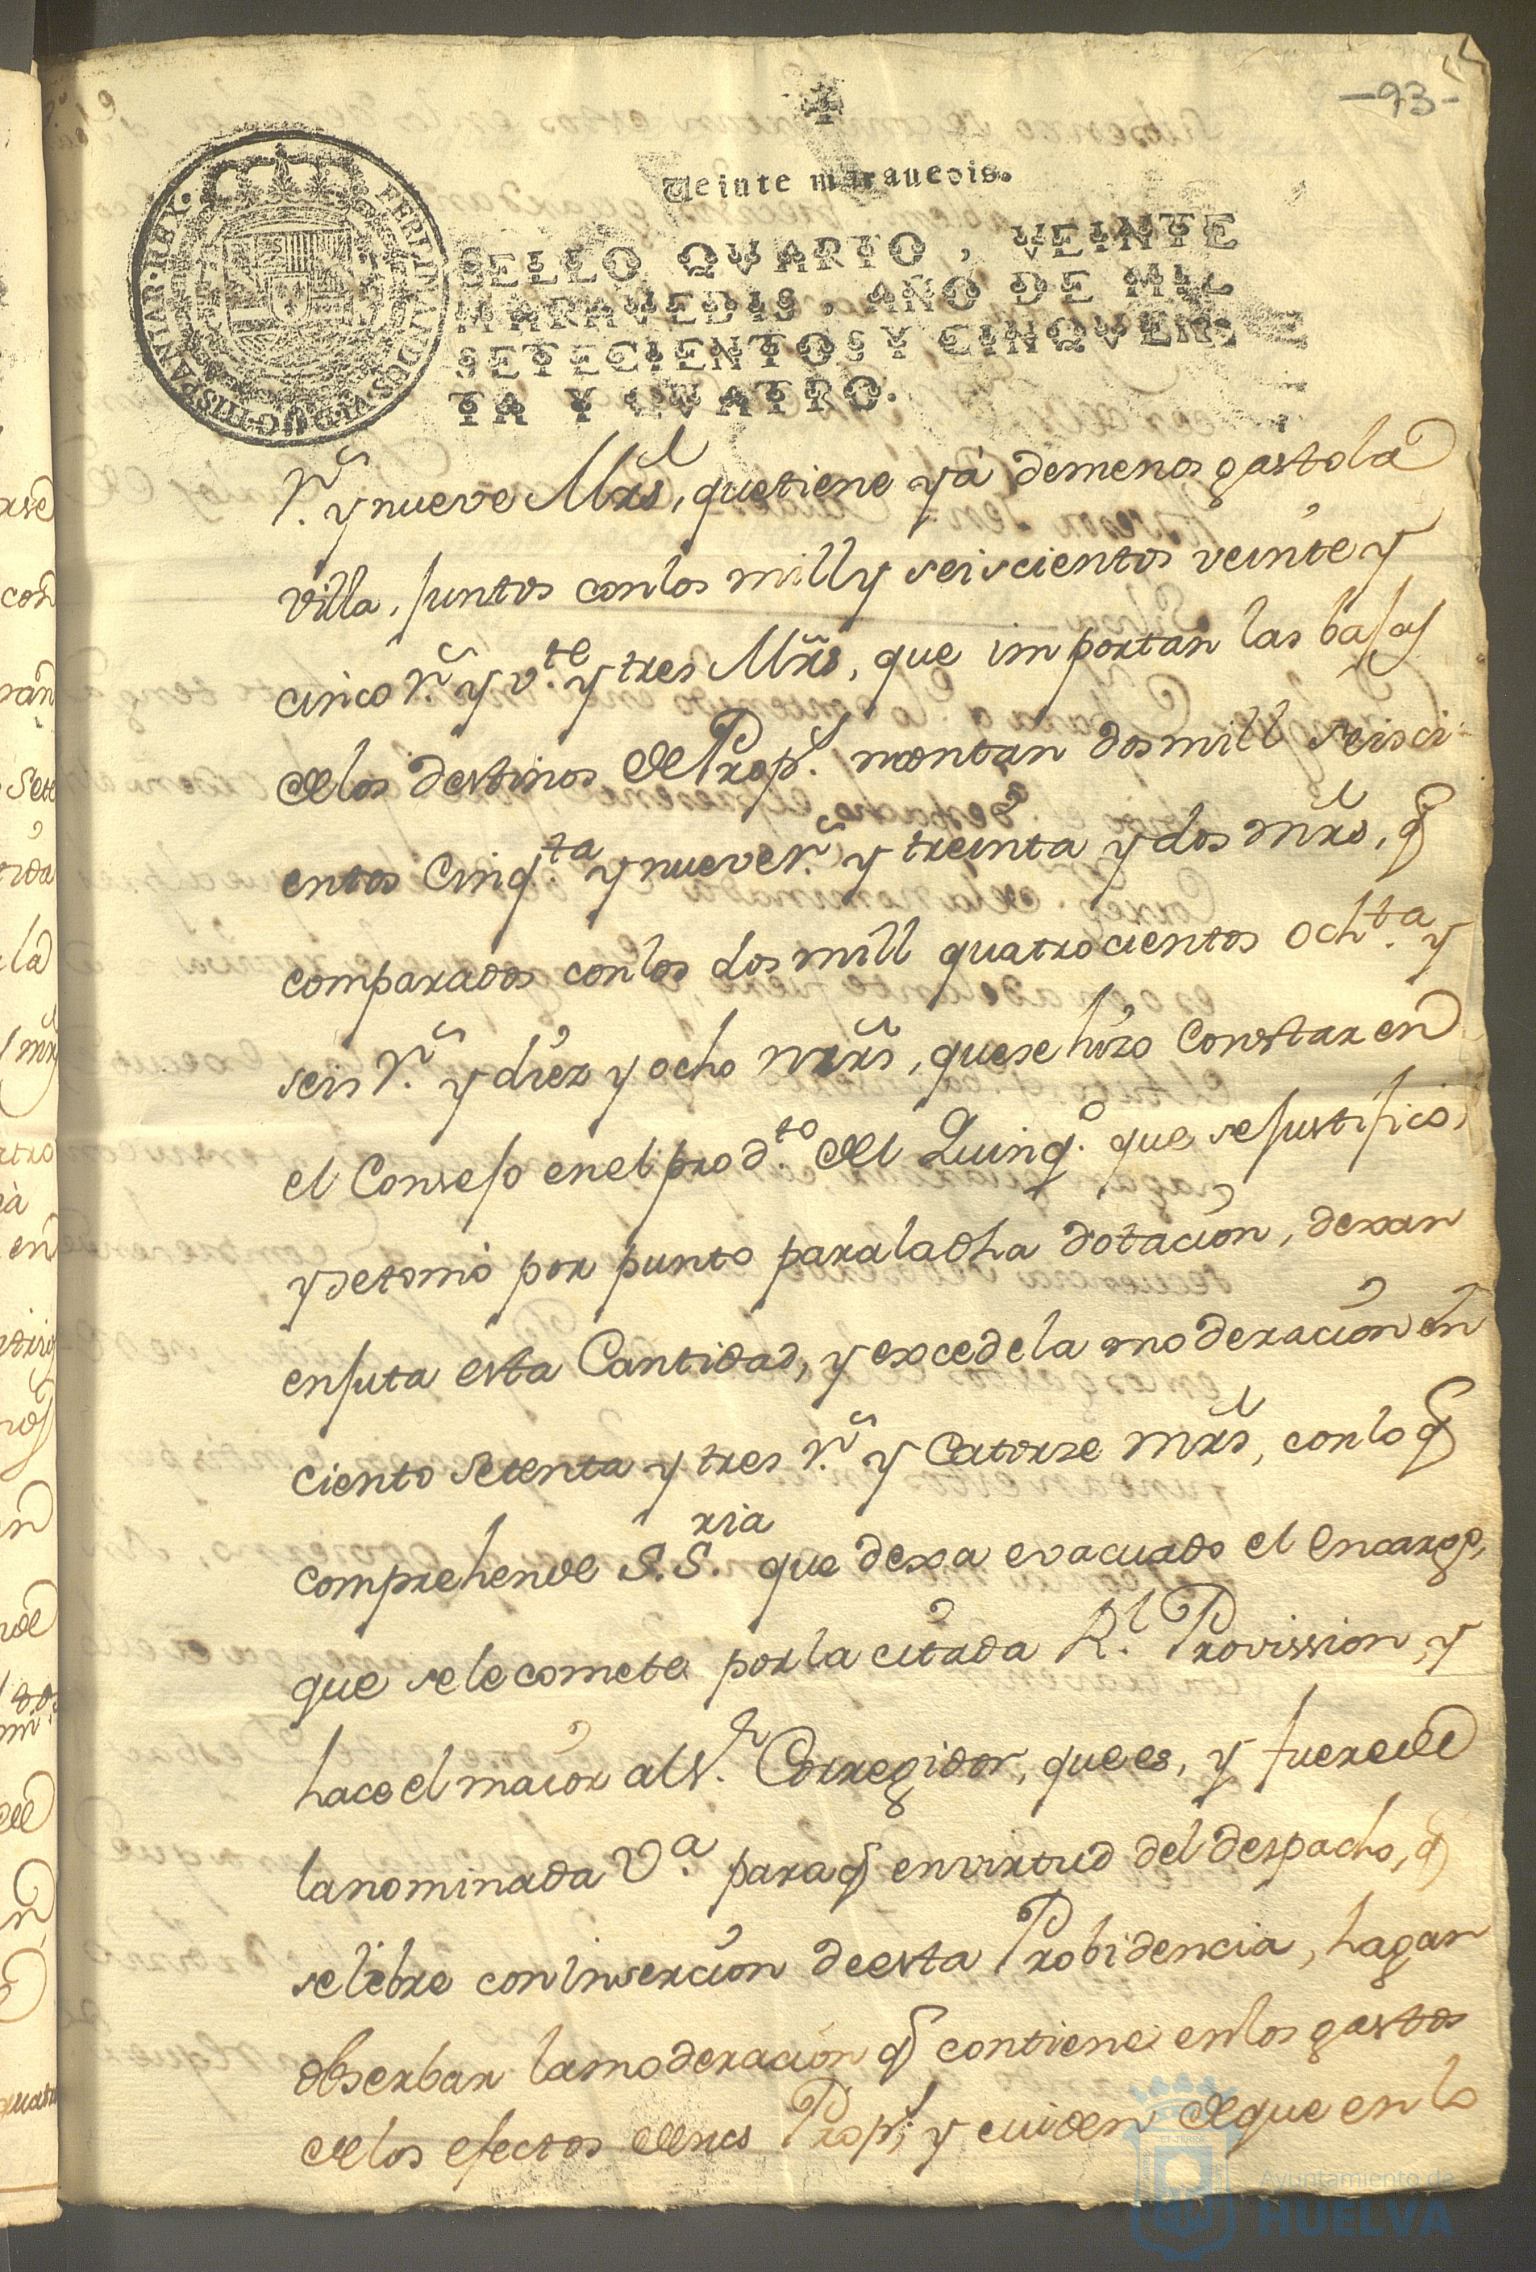 -93-
Veinte maravedis.
FERDINANDUS·VI·D·G·HISPANIAR·REX·
SELLO QVARTO, VEINTE
MARAVEDIS, AÑO DE MIL
SETECIENTOS Y CINQVEN-
TA Y QVATRO.
r.ˢ y nueve Mrs̃, que tiene yá de menos gasto la
villa, juntos con los mill y seiscientos veinte y
cinco r.ˢ y v.ᵗᵉ y tres Mr̃s, que importan las bajas
de los destinos de Prop.ˢ montan dos mill seisci-
entos Cinq.ᵗᵃ y nueve r.ˢ y treinta y dos mrs̃, q̃
comparados con los dos mill quatrocientos och.ᵗᵃ y
seis r.ˢ y diez y ocho mrs̃, que se hizo Constar en
el Consejo en el prod.ᵗᵒ del Quinq.º que se justificó,
y se tomó por punto para la dha dotacion, dexan
enjuta esta Cantidad, y excede la moderacion en
ciento setenta y tres r.ˢ y Catorze mrs̃, con lo q̃
comprehende S.S.ʳⁱᵃ que dexa evacuado el encargo,
que se le comete por la citada R.ˡ Provission, y
hace el maior al S.ʳ Corregidor, que es, y fuere de
la nominada V.ª para q̃ en virtud del despacho, q̃
se libre con insercion de esta Probidencia, hagan
obserbar la moderacion q̃ contiene en los gastos
de los efectos de sus Prop.ˢ y cuiden de que en lo
Ayuntamiento de
HUELVA